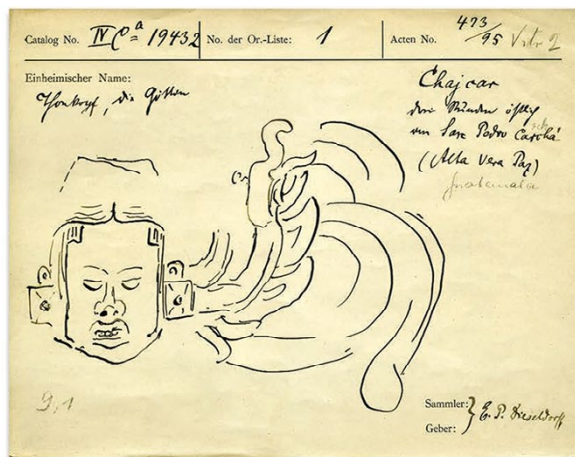 Catalog No. IV Ca 19432 No. der Or.-Liste: 1 Acten No. 473/95
Einheimischer Name:
Thonkopf, die Göttin
Chajcar
drei Stunden östlich
von San Pedro Carchá
(Alta Vera Paz)
Guatemala
9,1
Sammler: E. P. Dieseldorff
Geber: